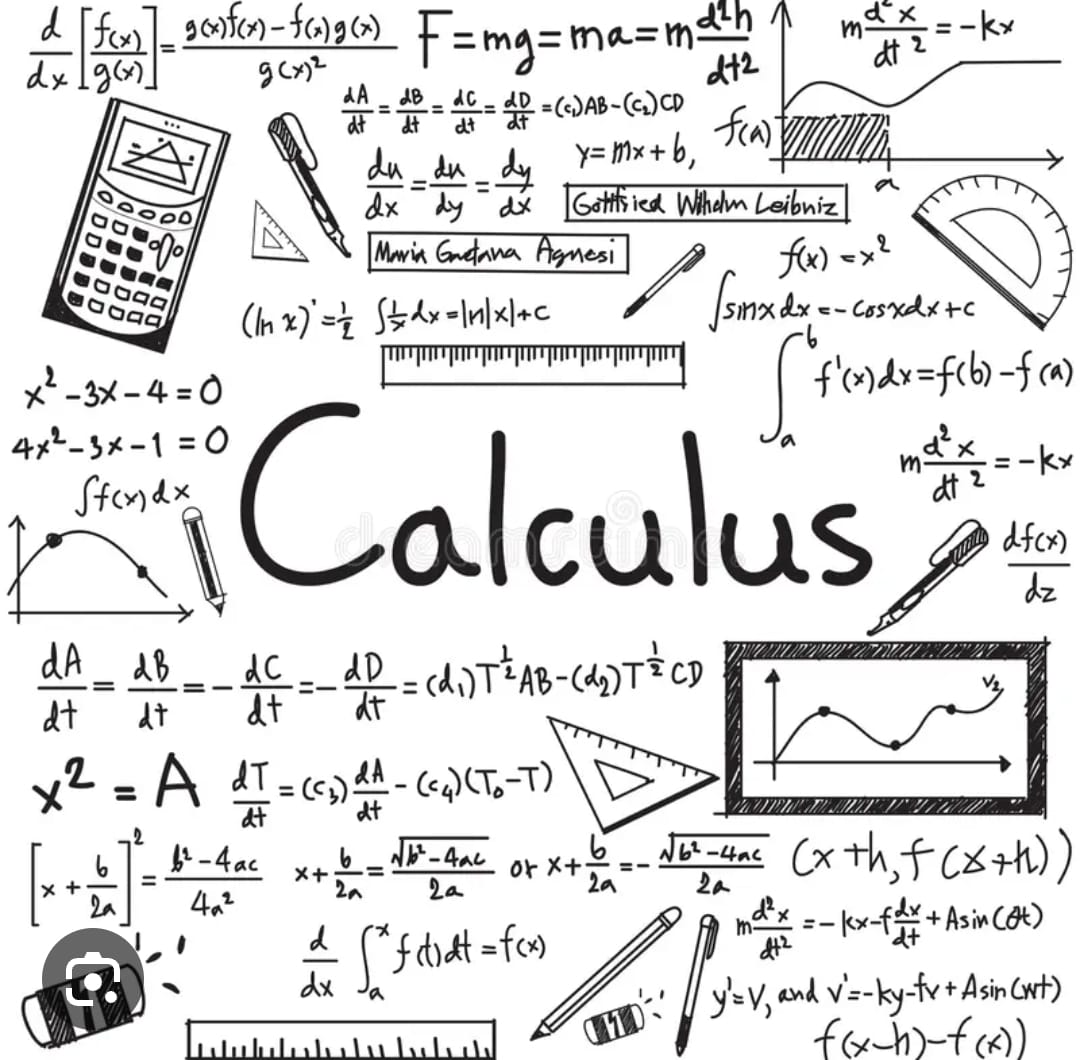 d/dx [f(x)/g(x)] = g(x)f(x) – f(x)g(x) / g(x)²
F = mg = ma = m d²h/dt2
m d²x/dt 2 = -kx
dA/dt = dB/dt = dC/dt = dD/dt = (c₁)AB-(c₂)CD
f(a)
a
du/dx = du/dy = dy/dx
y= mx + b,
Gottfried Wilhelm Leibniz
Maria Gaetana Agnesi
f(x) = x²
(ln x)' = 1/2
∫1/x dx = ln|x|+c
∫sinx dx = - cosxdx+c
∫ₐᵇ f'(x)dx=f(b) –f(a)
x² -3x – 4 = 0
4x² – 3x – 1 = 0
∫f(x) dx
Calculus
dreamstime.
m d²x/dt 2 = -kx
df(x)/dz
dA/dt = dB/dt = - dC/dt = - dD/dt = (d₁)T^1/2 AB-(d₂)T^1/2 CD
V₂
x² = A
dT/dt = (c₃) dA/dt - (c₄)(T₀-T)
[x + b/2a]² = b² – 4ac / 4a²
x+ b/2a = √b²-4ac / 2a or x+ b/2a = - √b²-4ac / 2a
(x+h, f(x+h))
m d²x/dt² = -kx-f dx/dt + Asin(θt)
d/dx ∫ₐˣ f(t)dt = f(x)
y'=V, and v'=-ky-fv+Asin(wt)
f(x-h)-f(x))